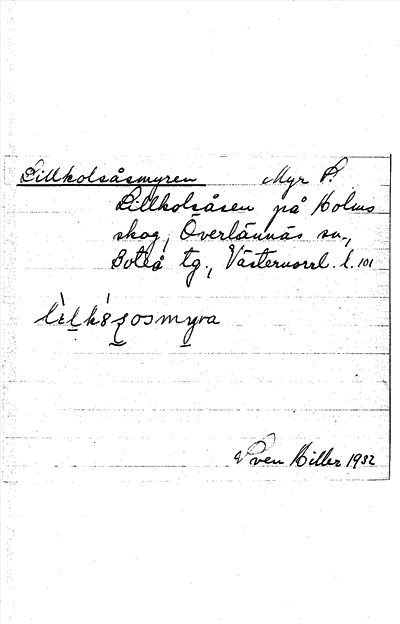 Lillkolsåsmyren Myr P.
Lillkolsåsen på Holms
skog, Överlännäs sn.,
Boteå tg., Västernorrl. l. 101
Sven Hiller 1932